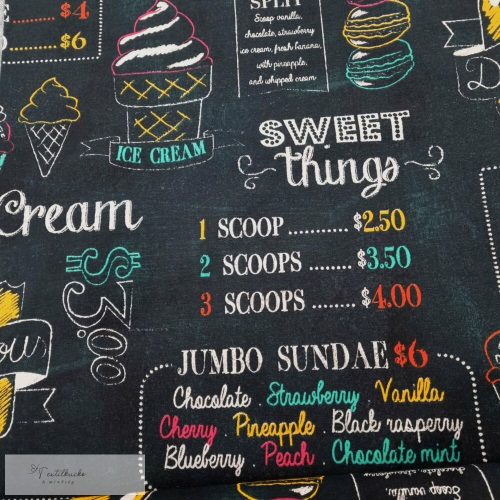 $4
$6
SPLIT
Scoop vanilla,
chocolate, strawberry
ice cream, fresh banana,
with pineapple,
and whipped cream
ICE CREAM
SWEET
things
Cream
$3.00
1 SCOOP ........ $2.50
2 SCOOPS ......... $3.50
3 SCOOPS ...... $4.00
JUMBO SUNDAE $6
Chocolate . Strawberry . Vanilla
Cherry . Pineapple . Black rasperry
Blueberry . Peach . Chocolate mint
Scoop vanilla,